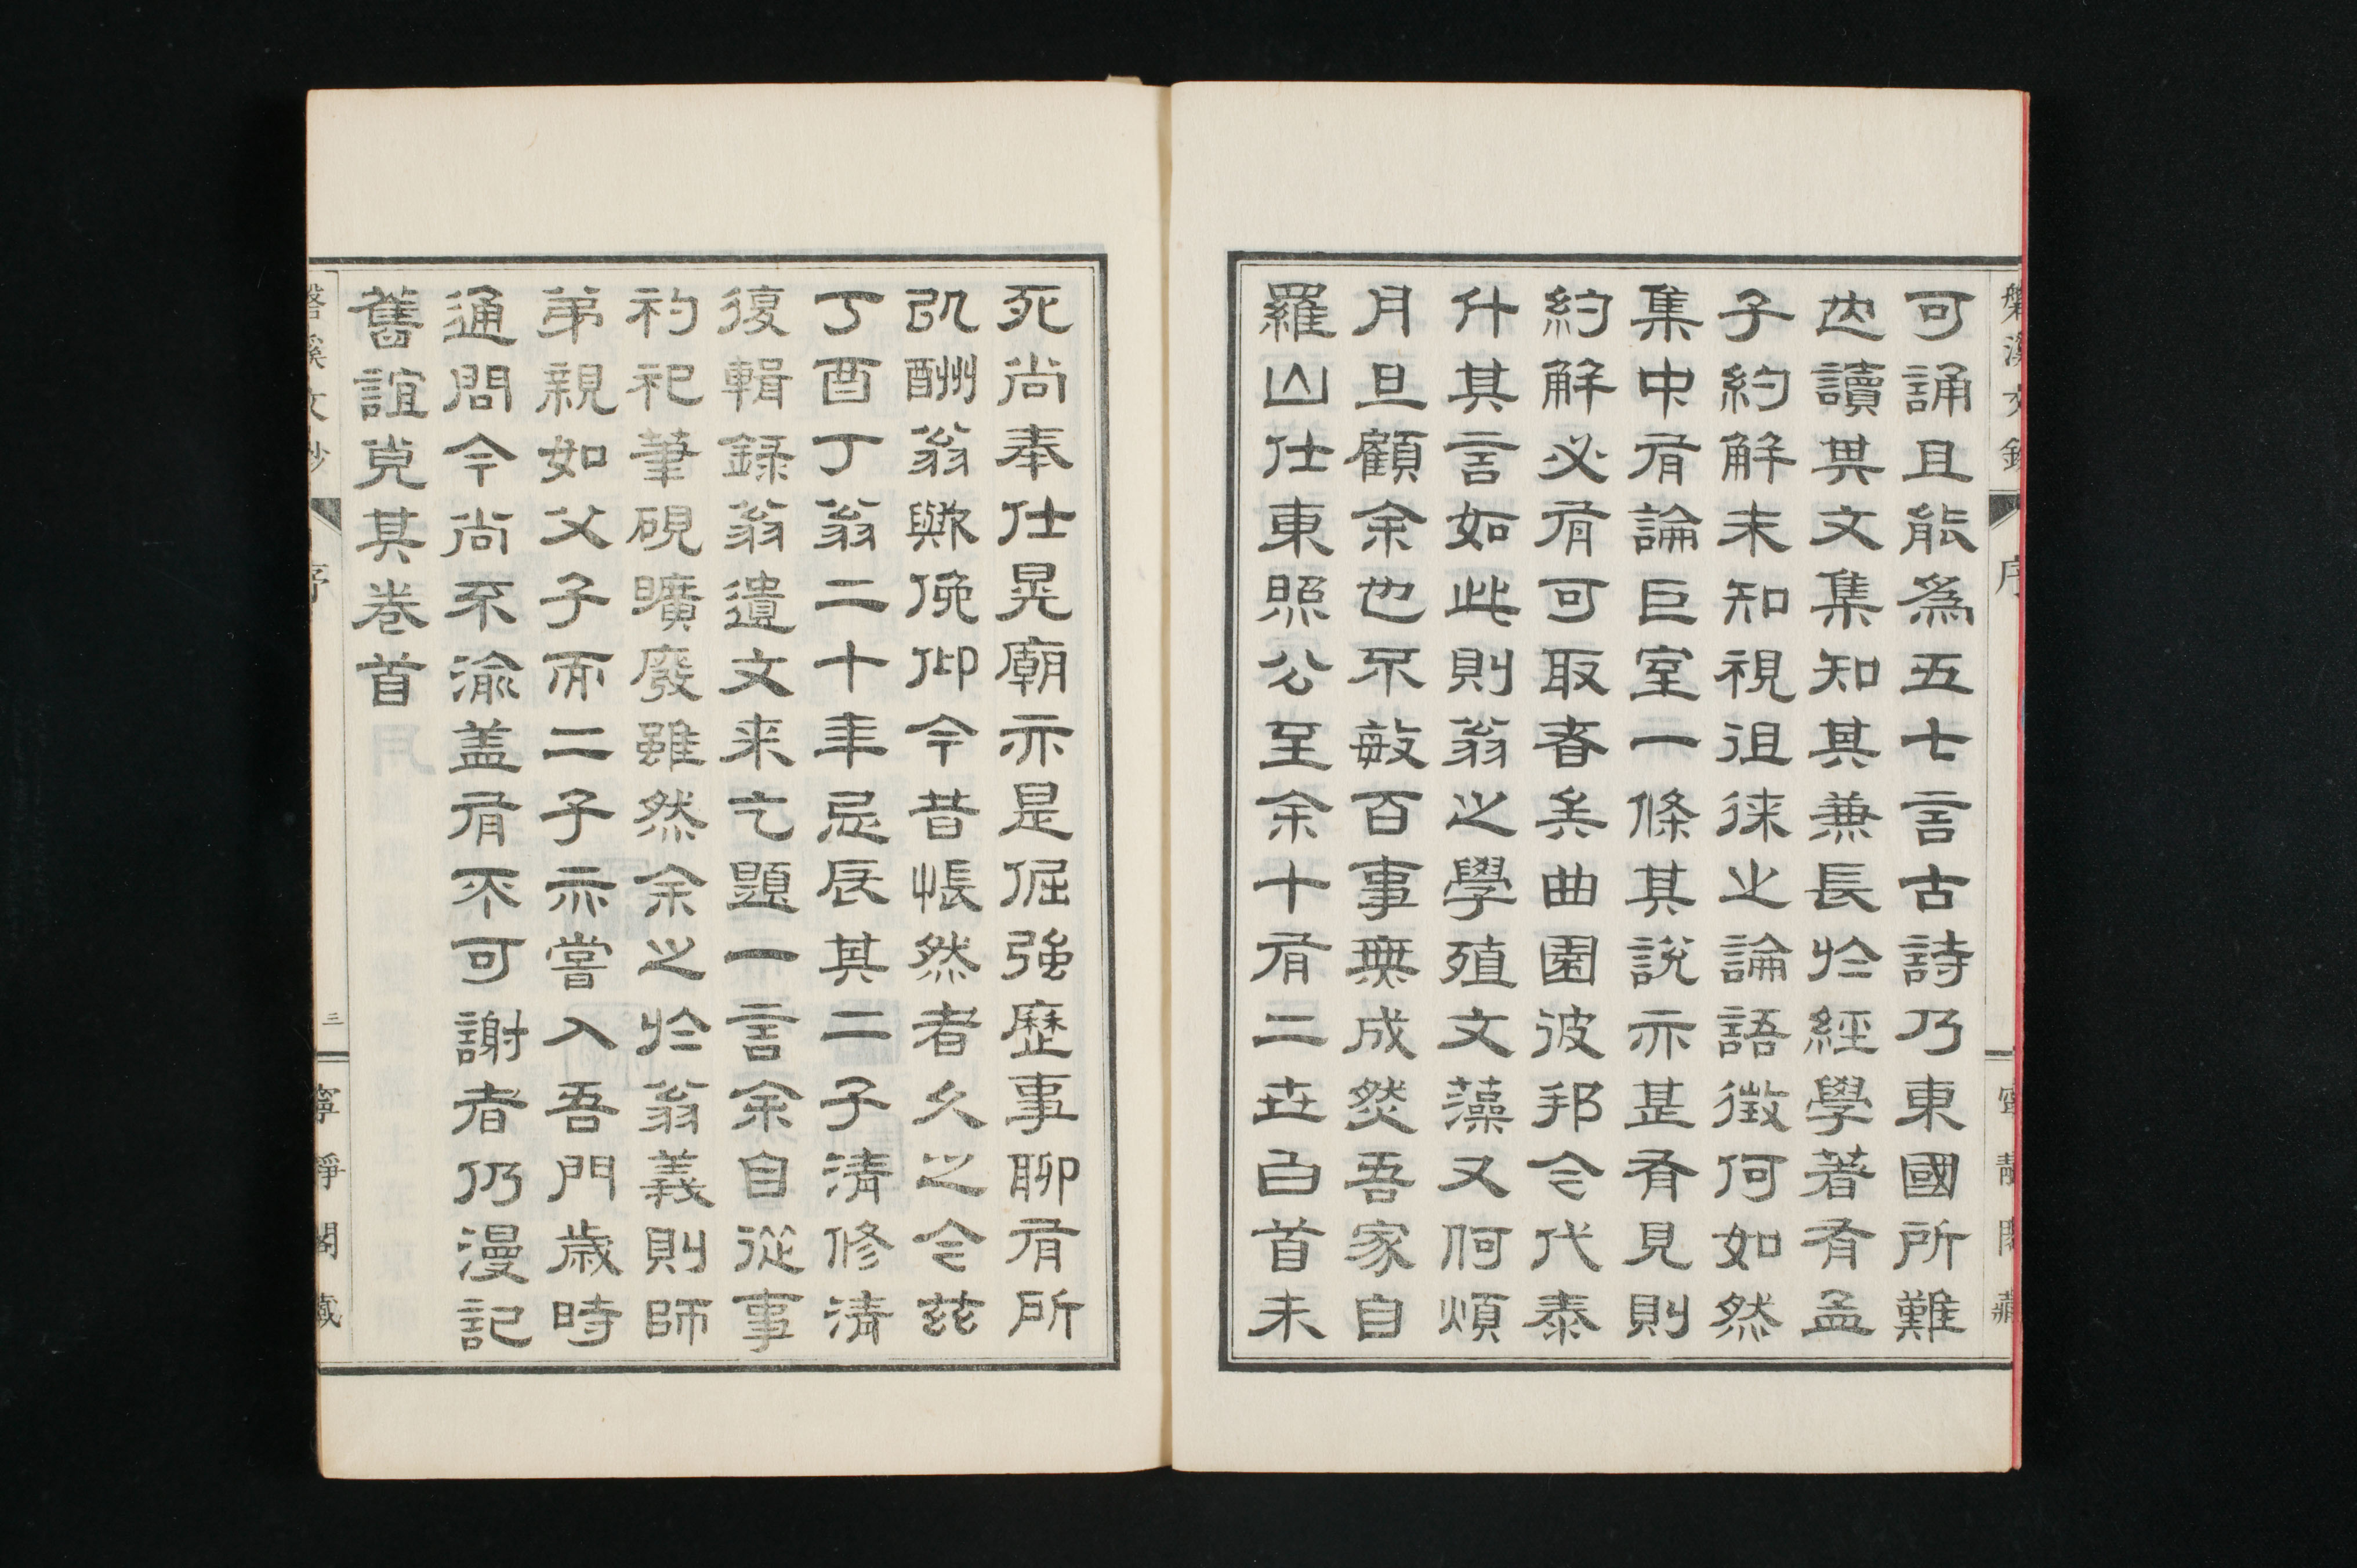 磐溪文鈔 序 寧靜閣藏
可誦且能爲五七言古詩乃東國所難
也讀其文集知其兼長於經學著有孟
子約解未知視徂徠之論語徵何如然
集中有論巨室一條其說亦甚有見則
約解必有可取者矣曲園彼邦今代泰
斗其言如此則翁之學殖文藻又何煩
月旦顧余也不敏百事無成然吾家自
羅山仕東照公至余十有二世白首未
死尚奉仕晃廟亦是倔強歷事聊有所
以酬翁歟俛仰今昔悵然者久之今茲
丁酉丁翁二十年忌辰其二子清修清
復輯錄翁遺文来乞題一言余自從事
礿祀筆硯曠廢雖然余之於翁義則師
弟親如父子而二子亦嘗入吾門歲時
通問今尚不渝蓋有不可謝者仍漫記
舊誼充其卷首
磐溪文鈔 序 三 寧靜閣藏